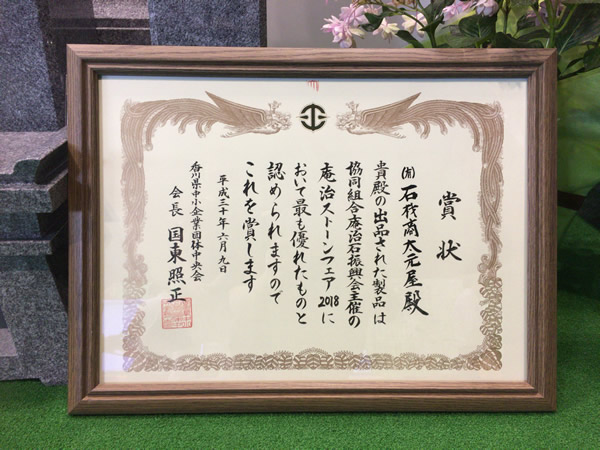 賞状
(有)石材商大元屋殿
貴殿の出品された製品は
協同組合庵治石振興会主催の
庵治ストーンフェア2018に
おいて最も優れたものと
認められますので
これを賞します
平成三十年六月九日
香川県中小企業団体中央会
会長 国東照正